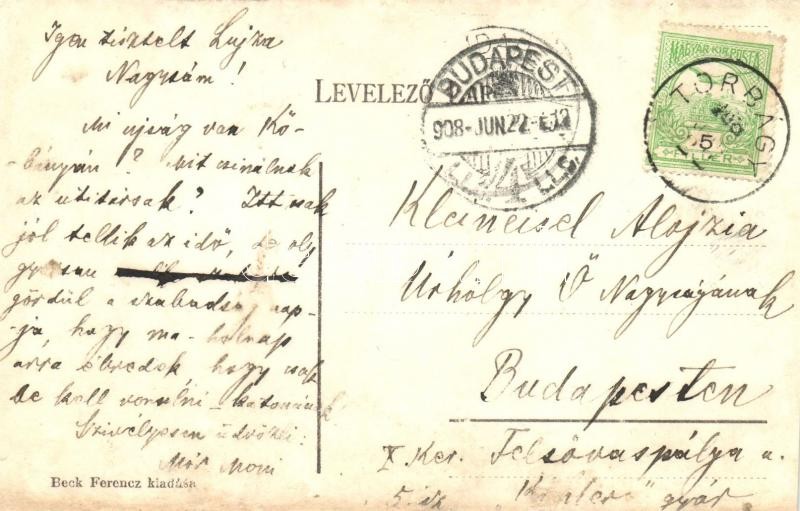 Igen tisztelt Lujza
Nagysám!
Mi ujság van Kő-
bányán? Mit csinálnak
az utitársak? Itt csak
jól tellik az idő, de oly
gyorsan
gördül a szabadság nap-
ja, hogy ma-holnap
arra ébredek hogy csak
be kell vonulni - katonának
Szivélyesen üdvözli:
Mór
Beck Ferencz kiadása
LEVELEZŐ
BUDAPEST
908-JUN22-
4
MAGYAR KIR. POSTA
FILLÉR
TORBÁGY
Alojzia
Úrhölgy Ő Nagyságának
Budapesten
X Ker. Felsővaspálya u.
5. sz. gyár